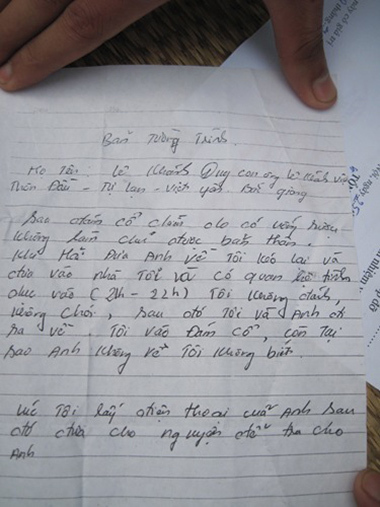 Bản Tường Trình
Họ Tên: Lê Khánh Duy con ông Lê Khánh
Thôn Đầu - Tự lạn - Việt yên Bắc giang
Sau đám cỗ cưới do có uống rượu
không làm chủ được bản thân.
Khi Hà đưa Anh về Tôi kéo lại và
đưa vào nhà Tôi và có quan hệ tình
dục vào (21h - 22h) Tôi không đánh,
không chói, sau đó tôi và Anh đi
ra về. Tôi vào Đám cỗ, còn tại
sao Anh không về Tôi không biết.
Lúc Tôi lấy điện thoại của Anh sau
đó đưa cho nguyện để trả cho
Anh